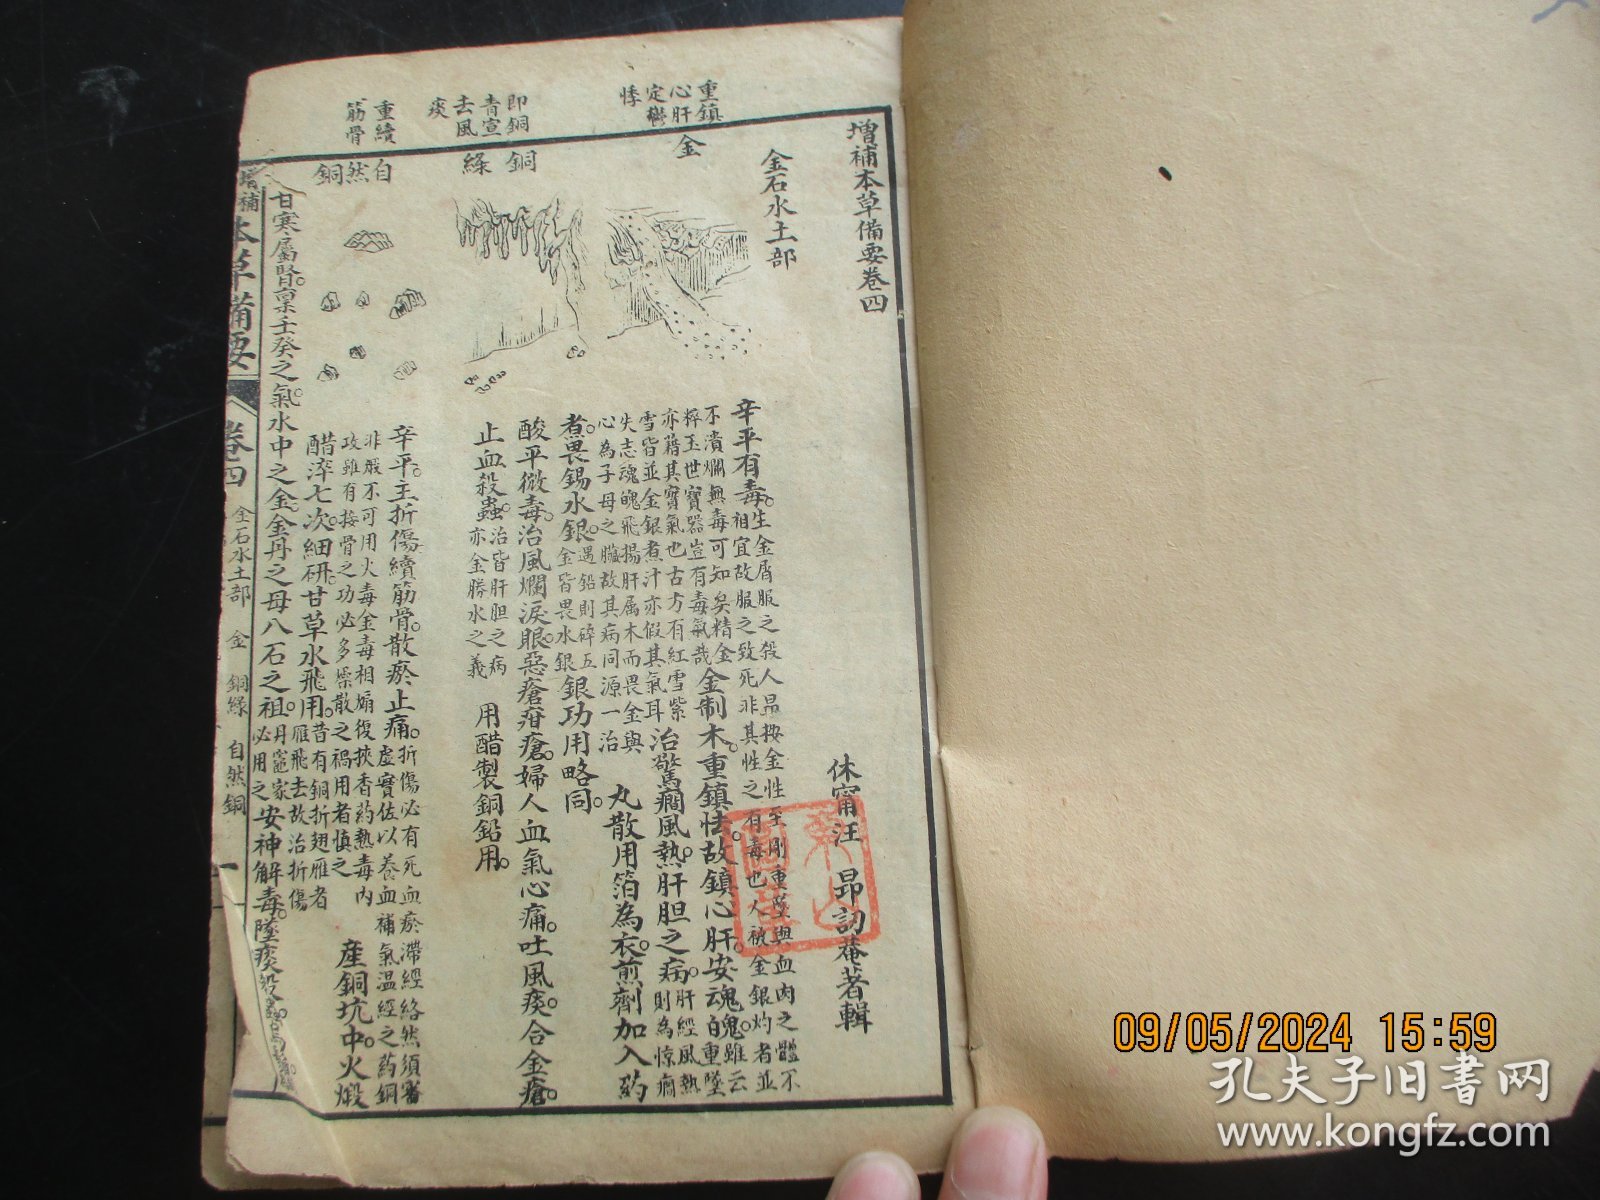 增補本草備要卷四
休甯汪 昂訒菴著輯
金石水土部
重鎮
心肝
定鬱
悸
金
辛平有毒。生金屑服之殺人昂按金性至剛重墜與血肉之體不
相宜故服之致死非其性之有毒也人被金銀灼者並
不潰爛無毒可知矣精金
粹玉世寶器豈有毒氣哉
金制木。重鎮怯。故鎮心肝。安魂魄。雖云重墜
亦藉其寶氣也古方有紅雪紫
雪皆並金銀煮汁亦假其氣耳
治驚癇風熱。肝胆之病。肝經風熱則為驚癇
失志魂魄飛揚肝屬木而畏金與
心為子母之臟故其病同源一治
丸散用箔為衣。煎劑加入葯
煮。畏錫水銀。遇鉛則碎五金皆畏水銀
銀功用略同。
即銅
青宣
去風
痰
銅
綠
酸平微毒。治風爛淚眼。惡瘡疳瘡。婦人血氣心痛。吐風痰。合金瘡。
止血殺蟲。治皆肝胆之病亦金勝水之義
用醋製銅鉛用。
重續
筋骨
自然銅
辛平。主折傷續筋骨。散瘀止痛。折傷必有死血瘀滯經絡然須審
虛實佐以養血補氣溫經之葯銅
非煅不可用火毒金毒相煽復挾香葯熱毒內
攻雖有接骨之功必多燥散之禍用者慎之
產銅坑中。火煅
醋淬七次。細研。甘草水飛用。昔有銅折翅雁者
雁飛去故治折傷
甘寒屬腎。稟壬癸之氣。水中之金。金丹之母八石之祖。丹竈家
必用之
安神解毒。墜痰殺
增補本草備要
卷四
金石水土部 金 銅綠 自然銅
一
09/05/2024 15:59
孔夫子旧书网
www.kongfz.com